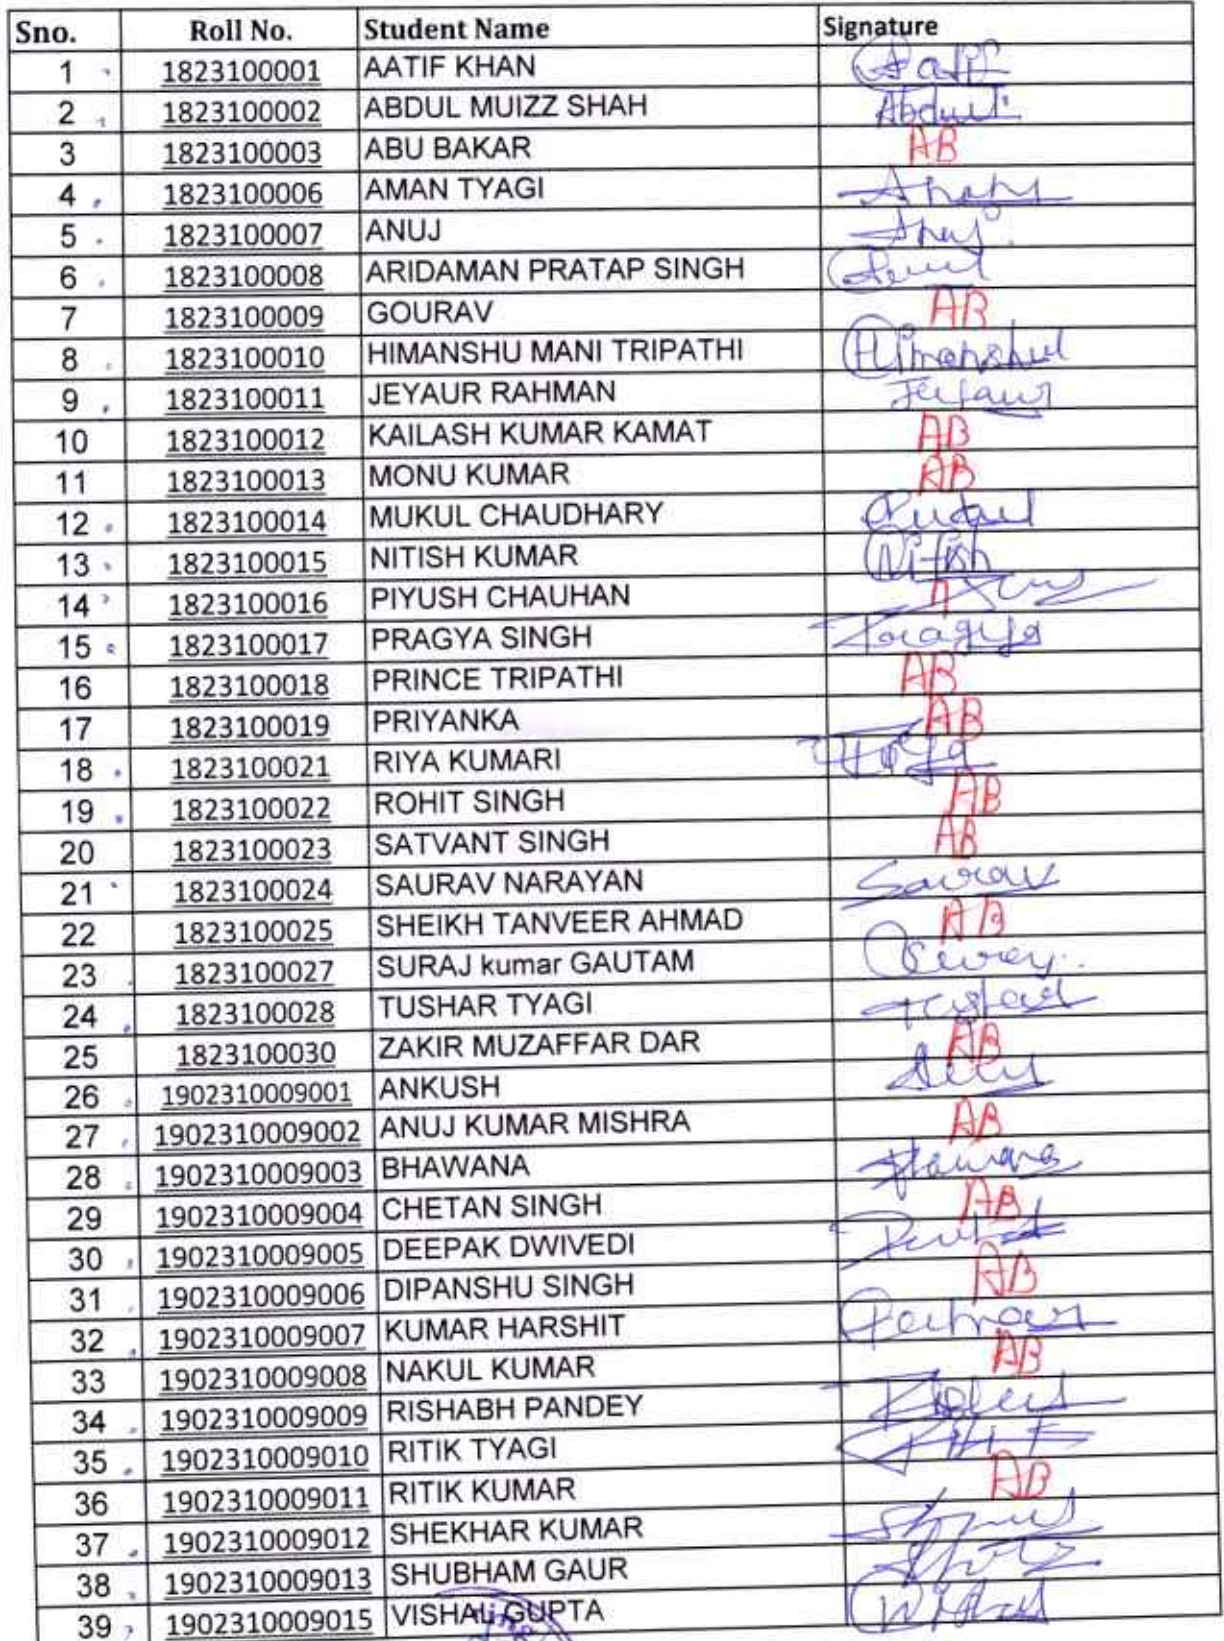 Sno. Roll No. Student Name Signature
1 1823100001 AATIF KHAN Aatif
2 1823100002 ABDUL MUIZZ SHAH Abdul
3 1823100003 ABU BAKAR AB
4 1823100006 AMAN TYAGI
5 1823100007 ANUJ Anuj
6 1823100008 ARIDAMAN PRATAP SINGH
7 1823100009 GOURAV AB
8 1823100010 HIMANSHU MANI TRIPATHI Himanshu
9 1823100011 JEYAUR RAHMAN Jeyaur
10 1823100012 KAILASH KUMAR KAMAT AB
11 1823100013 MONU KUMAR AB
12 1823100014 MUKUL CHAUDHARY
13 1823100015 NITISH KUMAR Nitish
14 1823100016 PIYUSH CHAUHAN
15 1823100017 PRAGYA SINGH Pragya
16 1823100018 PRINCE TRIPATHI AB
17 1823100019 PRIYANKA AB
18 1823100021 RIYA KUMARI Riya
19 1823100022 ROHIT SINGH AB
20 1823100023 SATVANT SINGH AB
21 1823100024 SAURAV NARAYAN Saurav
22 1823100025 SHEIKH TANVEER AHMAD AB
23 1823100027 SURAJ kumar GAUTAM Suraj
24 1823100028 TUSHAR TYAGI Tushar
25 1823100030 ZAKIR MUZAFFAR DAR AB
26 1902310009001 ANKUSH
27 1902310009002 ANUJ KUMAR MISHRA AB
28 1902310009003 BHAWANA Bhawana
29 1902310009004 CHETAN SINGH AB
30 1902310009005 DEEPAK DWIVEDI
31 1902310009006 DIPANSHU SINGH AB
32 1902310009007 KUMAR HARSHIT
33 1902310009008 NAKUL KUMAR AB
34 1902310009009 RISHABH PANDEY
35 1902310009010 RITIK TYAGI
36 1902310009011 RITIK KUMAR AB
37 1902310009012 SHEKHAR KUMAR
38 1902310009013 SHUBHAM GAUR
39 1902310009015 VISHAL GUPTA